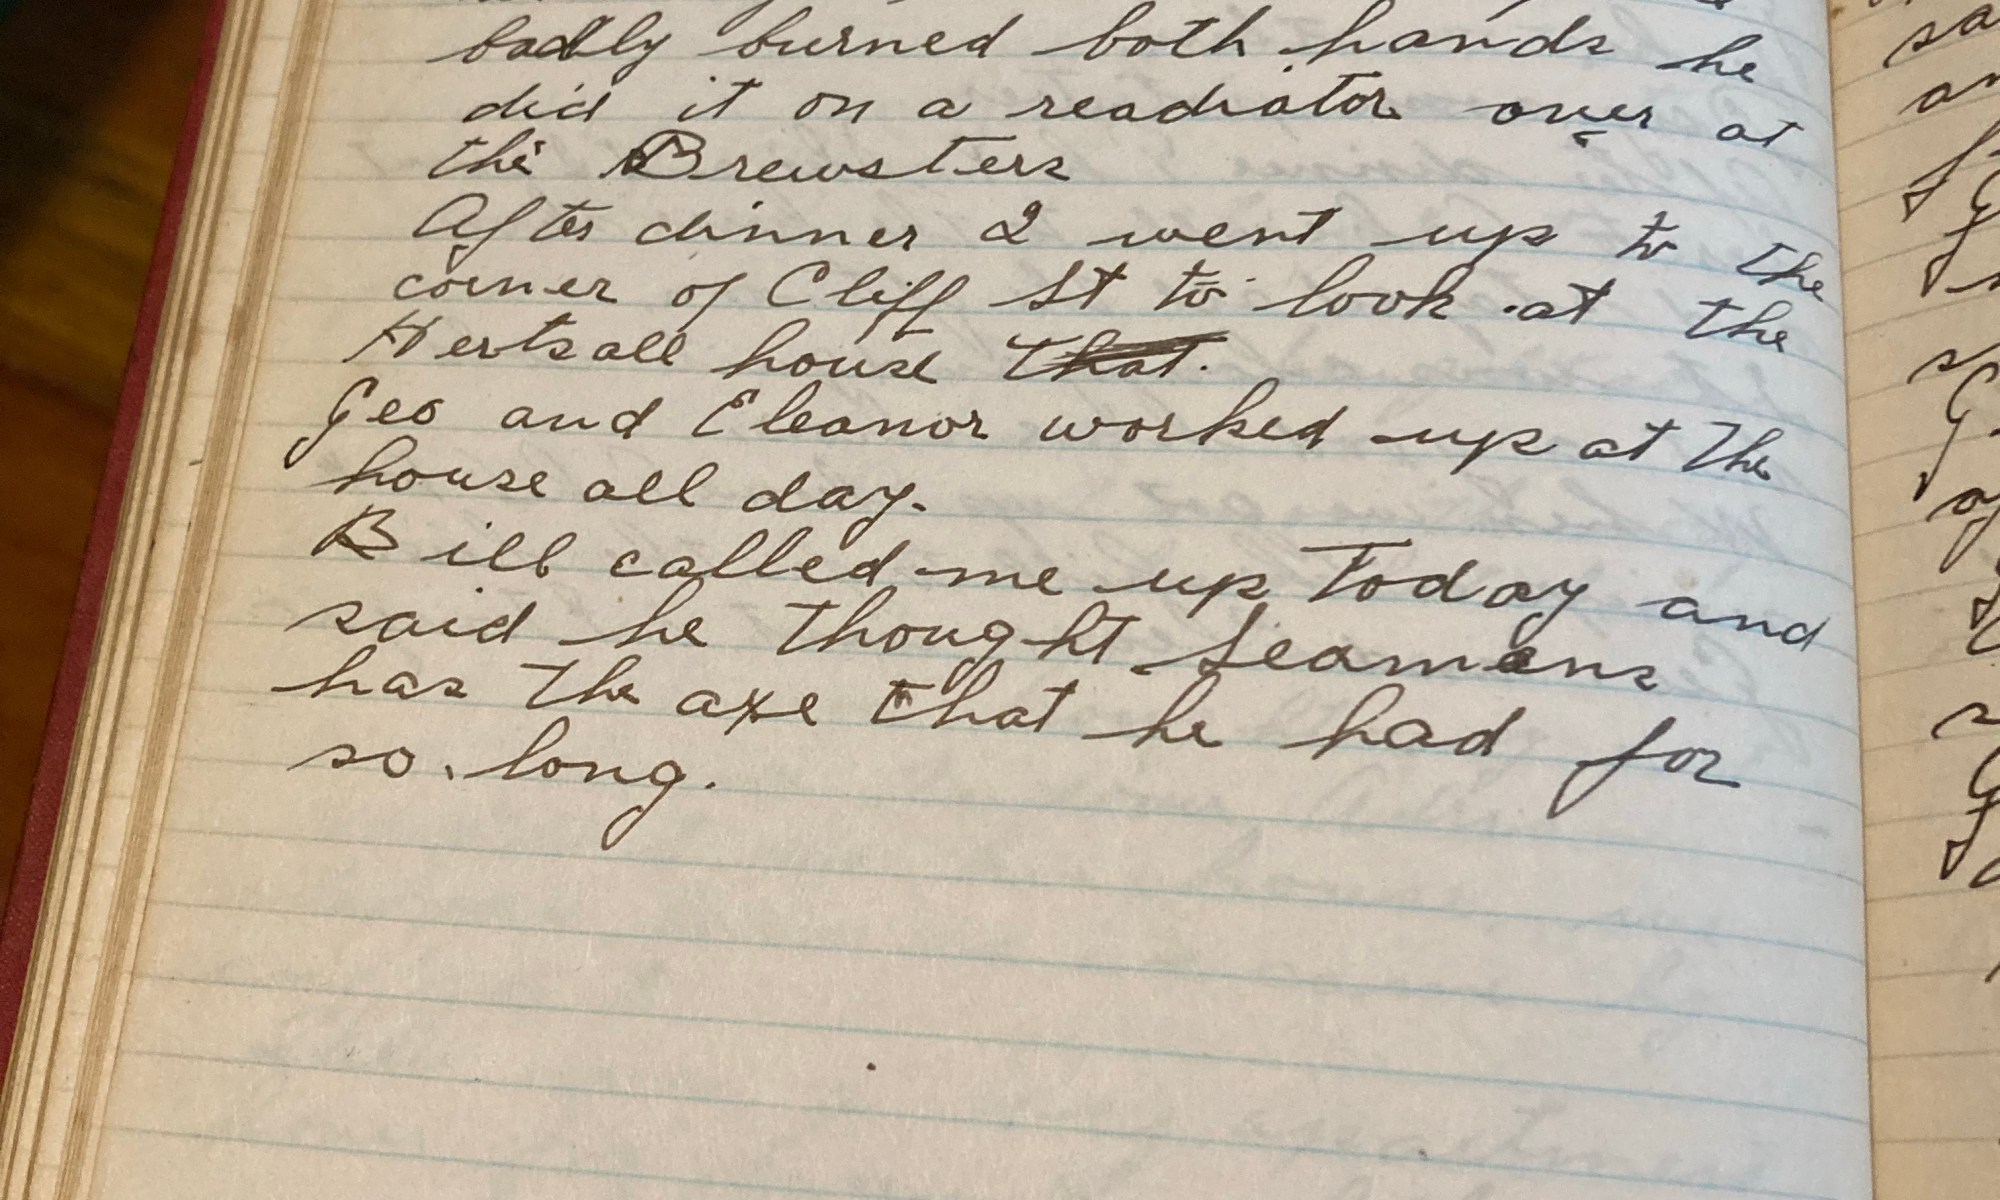 badly burned both hands he
did it on a readiator over at
the Brewsters
After dinner I went up to the
corner of Cliff St to look at the
Hertsall house that.
Geo and Eleanor worked up at the
house all day.
Bill called me up Today and
said he thought Seamens
has the axe that he had for
so long.